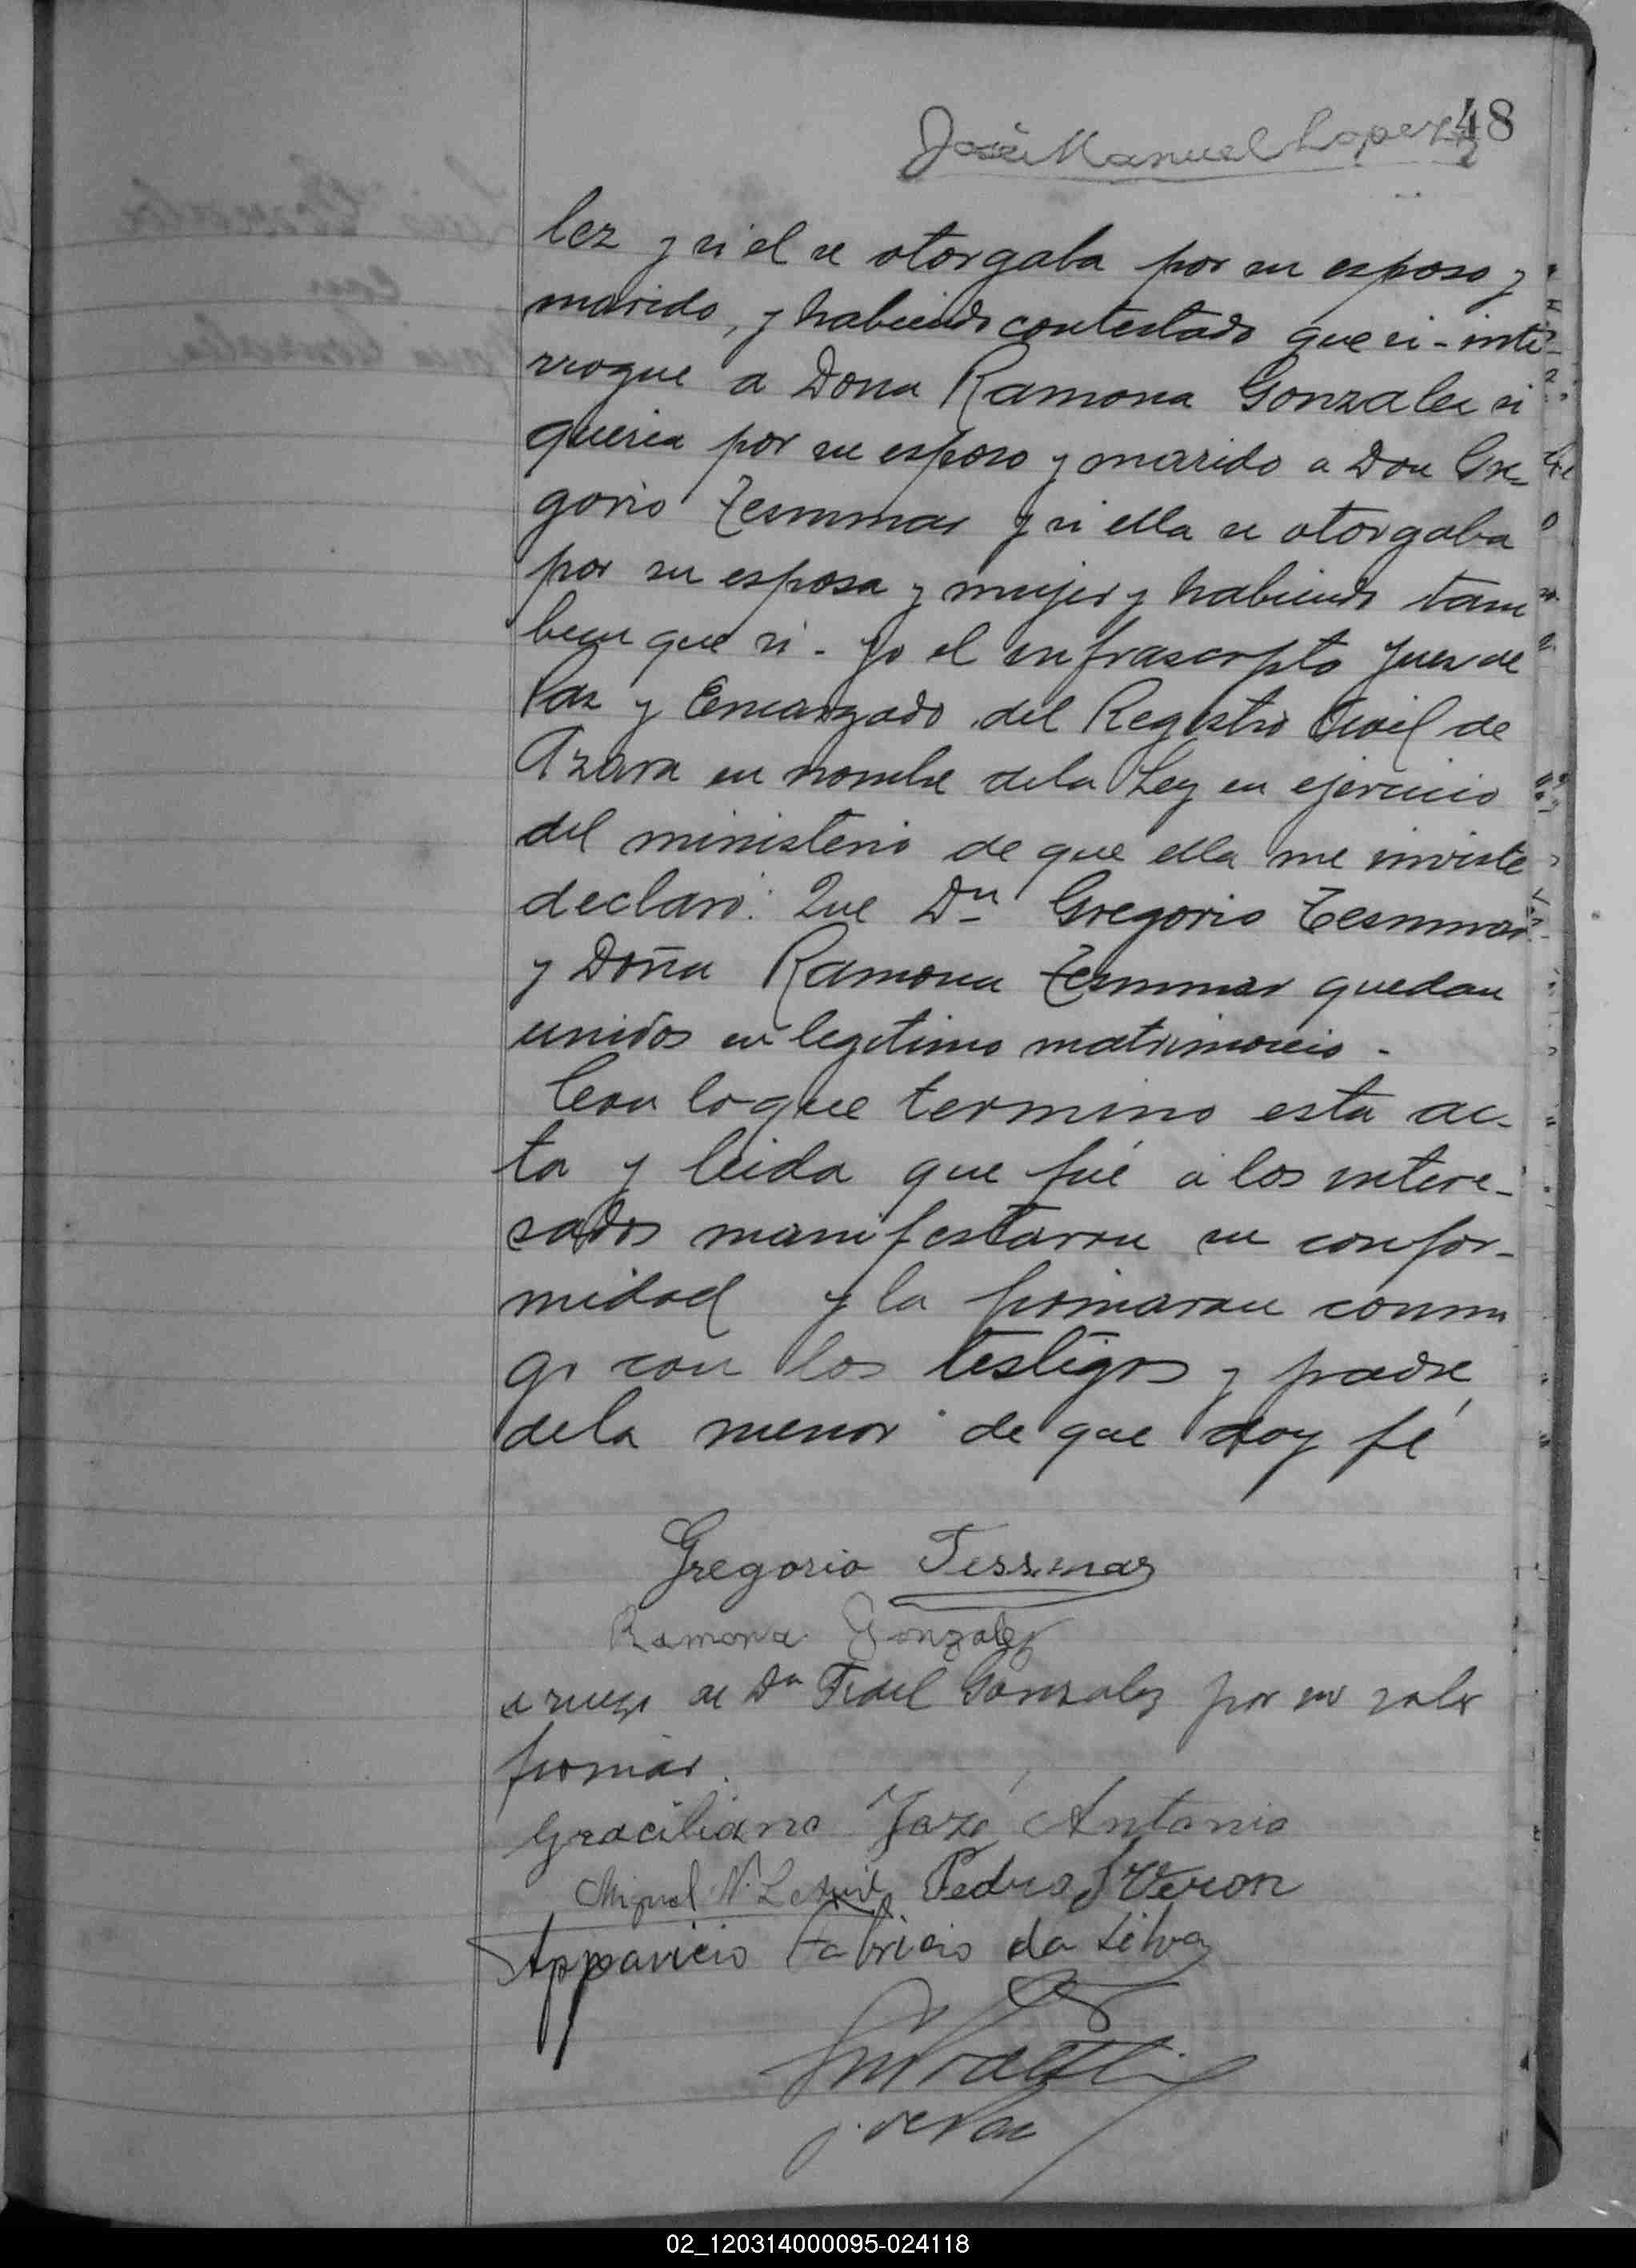 48
José Manuel Lopez
lez y si el se otorgaba por su esposo y
marido, y habiendo contestado que si - inte-
rrogue a Dona Ramona Gonzalez si
queria por su esposo y marido a Don Gre-
gorio Tesmmar y si ella se otorgaba
por su esposa y mujer y habiendo tam
bien que si - yo el infrascrpto Juez de
Paz y Encargado del Registro Civil de
Azara en nombre dela Ley en ejercicio
del ministerio de que ella me inviste
declaro: Que Dn Gregorio Tesmmar
y Doña Ramona Tesmmar quedan
unidos en legitimo matrimonio -
Con lo que termino esta ac-
ta y leida que fué a los intere-
sados manifestaron su confor-
midad y la firmaran conmi
go con los testigos y padre
dela menor de que doy fé
Gregorio Tessmar
Ramona Gonzalez
a ruego de Dn Fidel Gonzalez por no saber
firmar.
Graciliano José Antonio
Miguel N. Pedro Veron
Apparicio Fabricio da Silva
J. de Paz
02_120314000095-024118